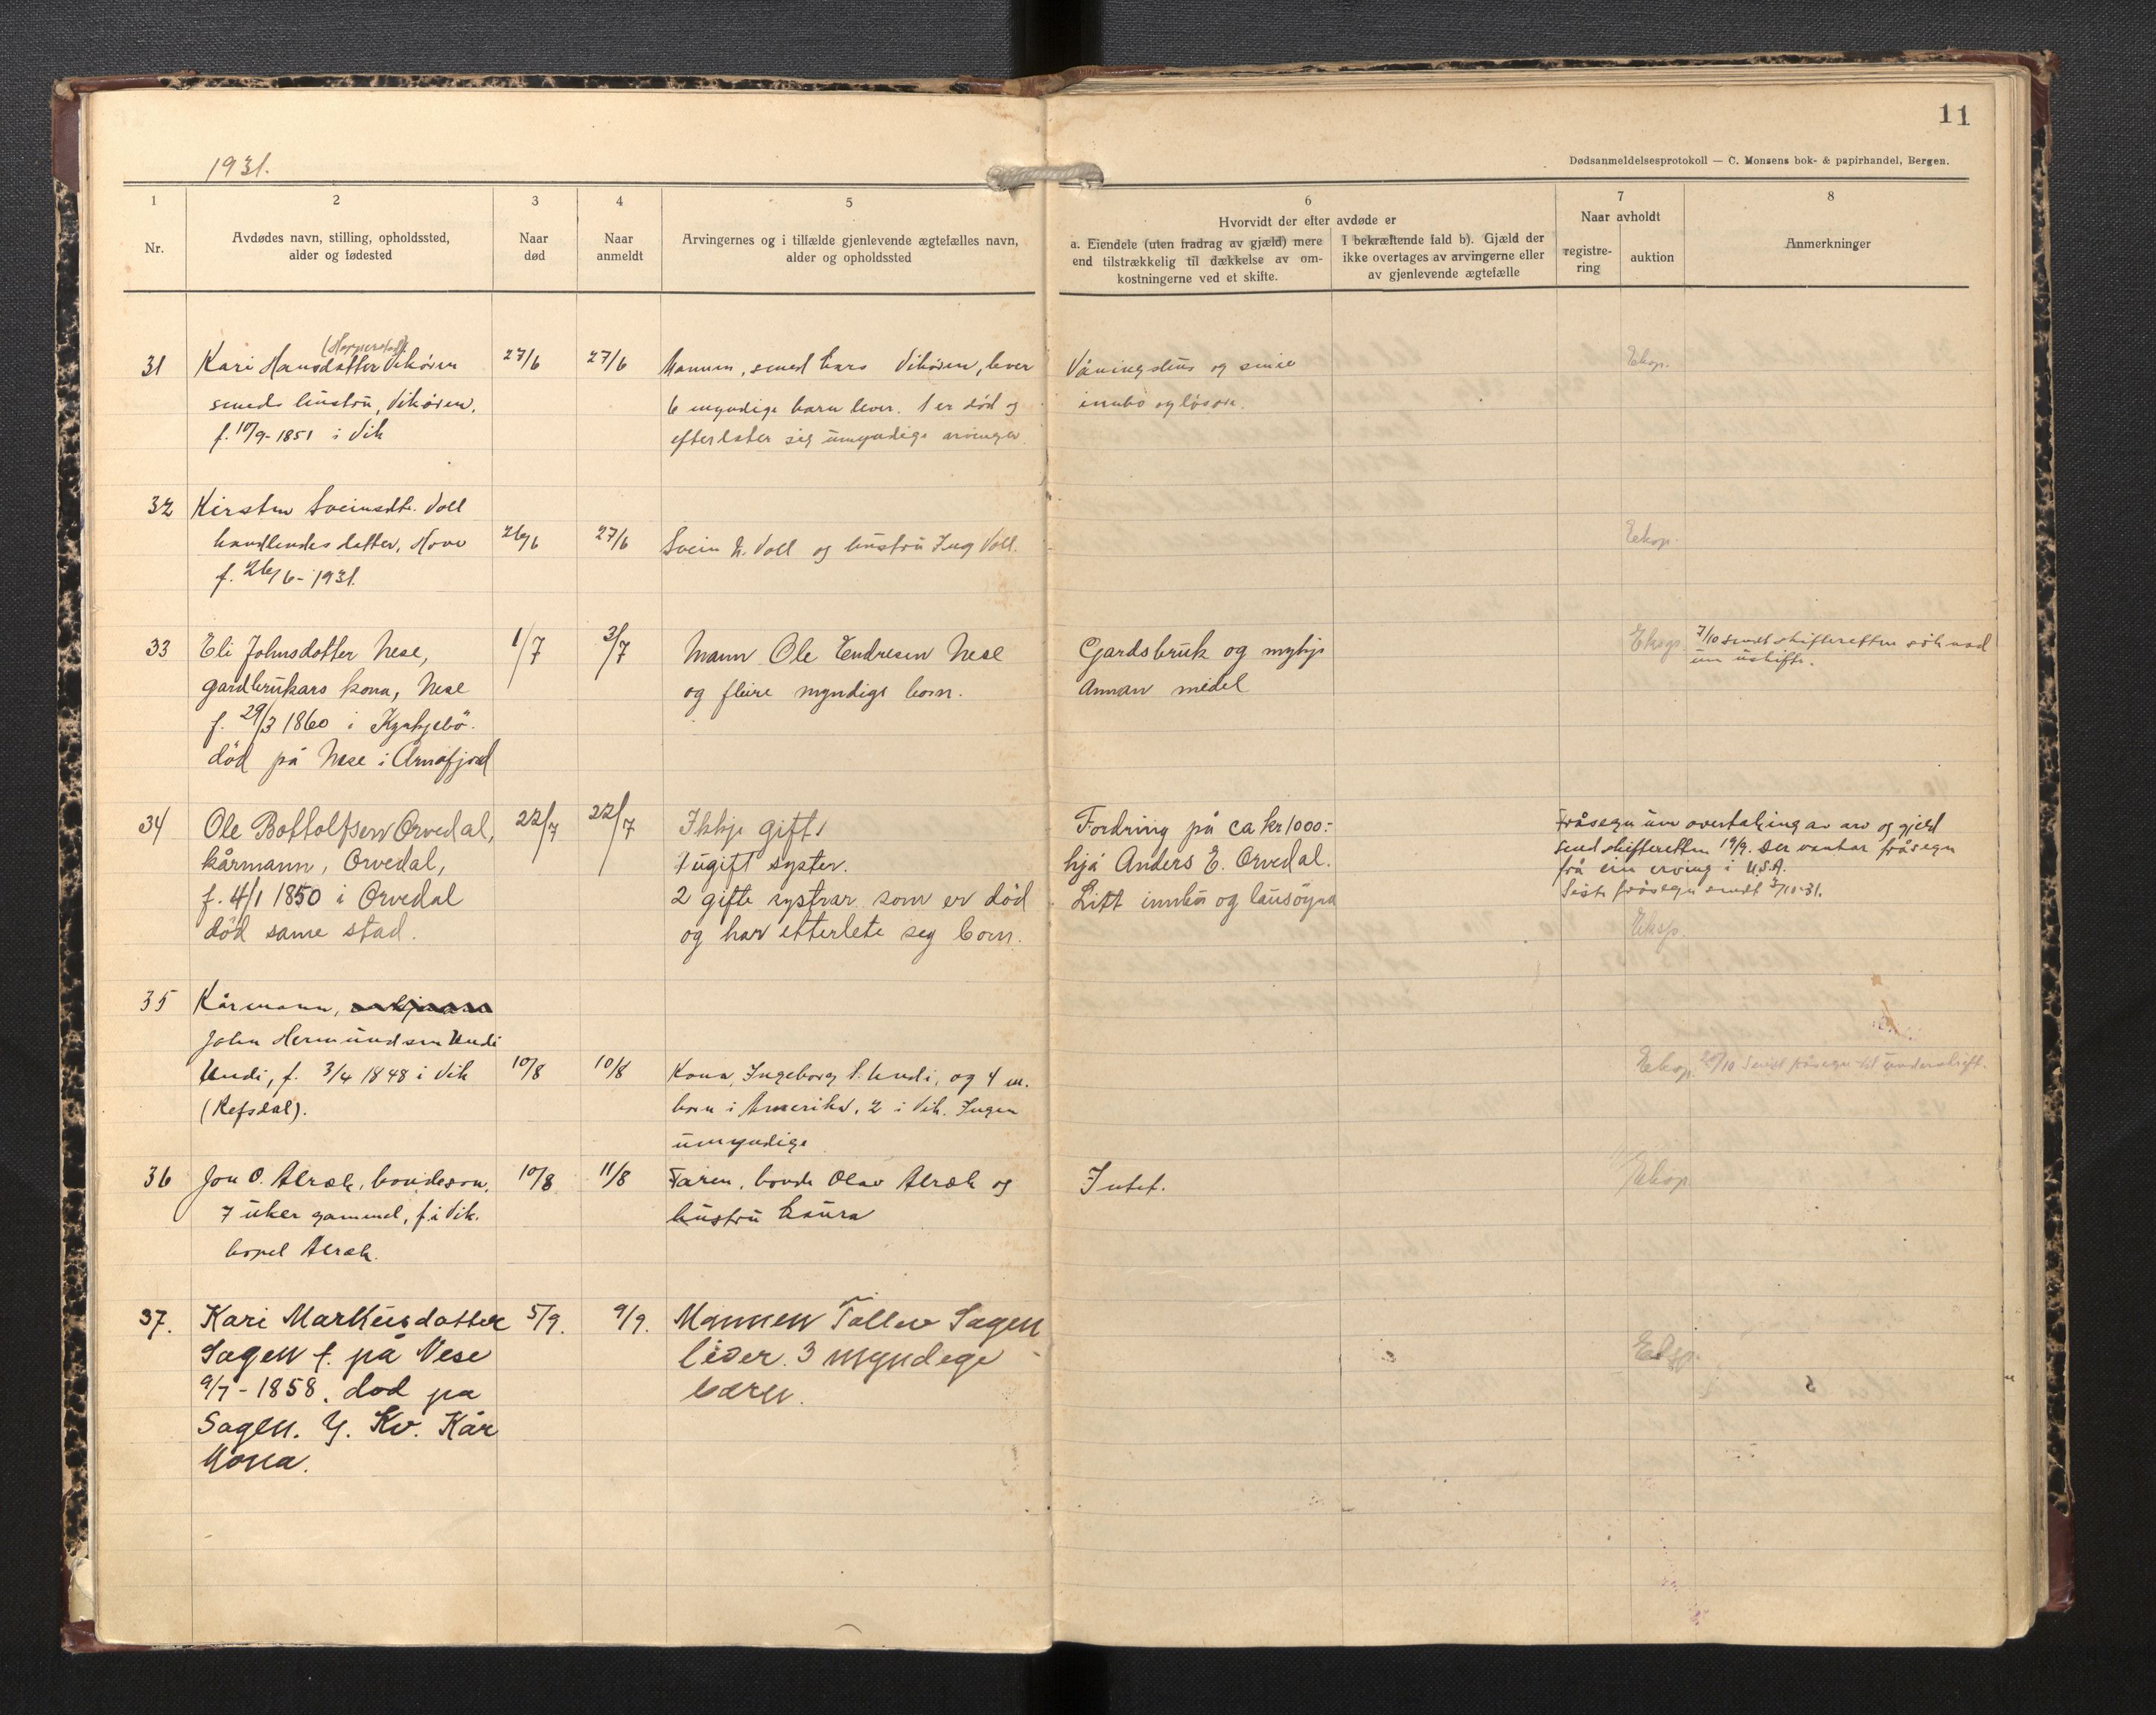 11
Dødsanmeldelsesprotokoll — C. Monsens bok- & papirhandel, Bergen.
1931.
1
Nr.
2
Avdødes navn, stilling, opholdssted,
alder og fødested
3
Naar
død
4
Naar
anmeldt
5
Arvingernes og i tilfælde gjenlevende ægtefælles navn,
alder og opholdssted
6
Hvorvidt der efter avdøde er
a. Eiendele (uten fradrag av gjæld) mere
end tilstrækkelig til dækkelse av om-
kostningerne ved et skifte.
I bekræftende fald b). Gjæld der
ikke overtages av arvingerne eller
av gjenlevende ægtefælle
7
Naar avholdt
registre-
ring
auktion
8
Anmerkninger
31
(Hopperstad)
Kari Hansdatter Vikøren
smeds hustru, Vikøren.
f. 10/9-1851 i Vik
27/6
27/6
Mannen, smed Lars Vikøren, lever
6 myndige barn lever. 1 er død og
efterlater sig umyndige arvinger.
Våningshus og smie
innbo og løsøre.
Eksp.
32
Kirsten Sveinsdtr. Voll
handlendes datter, Hove
f. 26/6-1931.
26/6
27/6
Svein N. Voll og hustru Ing Voll.
Eksp.
33
Eli Johnsdotter Nese,
gardbrukars kona, Nese
f. 29/3 1860 i Kyrkjebö.
död på Nese i Arnafjord
1/7
3/7
Mann Ole Endresen Nese
og fleire myndige born.
Gardsbruk og mykje
annan midel
Eksp.
7/10 sendt skifteretten söknad
um uskifte.
34
Ole Bottolfsen Orvedal,
kårmann, Orvedal,
f. 4/1 1850 i Orvedal
död same stad.
22/7
22/7
Ikkje gift,
1 ugift syster.
2 gifte systrar som er död
og har etterlete seg born.
Fordring på ca kr 1000:-
hjå Anders E. Orvedal.
Litt innbu og lausöyra
Fråsegn um overtaking av arv og gjeld
send skifteretten 19/9. Der vantar fråsegn
frå ein erving i U.S.A.
Siste fråsegn sendt 3/11-31.
Eksp.
35
Kårmann,
John Hermundsen Undi
Undi, f. 3/4 1848 i Vik
(Refsdal).
10/8
10/8
Kona, Ingeborg Undi, og 4 m.
born i Amerika, 2 i Vik. Ingen
umyndige
Eksp.
20/10 Sendt fråsegn til underskrift.
36
Jon O. Alrek, bondeson,
7 uker gammel, f. i Vik.
bopel Alrek.
10/8
11/8
Faren, bonde Olav Alrek og
hustru Laura
Intet.
Eksp
37.
Kari Markusdatter
Sagen f. på Nese
9/7-1858. død på
Sagen. G. Kv. Kår
Kona.
5/9.
9/9.
Mannen Tollev Sagen
lever. 3 myndege
bærn.
Eksp.